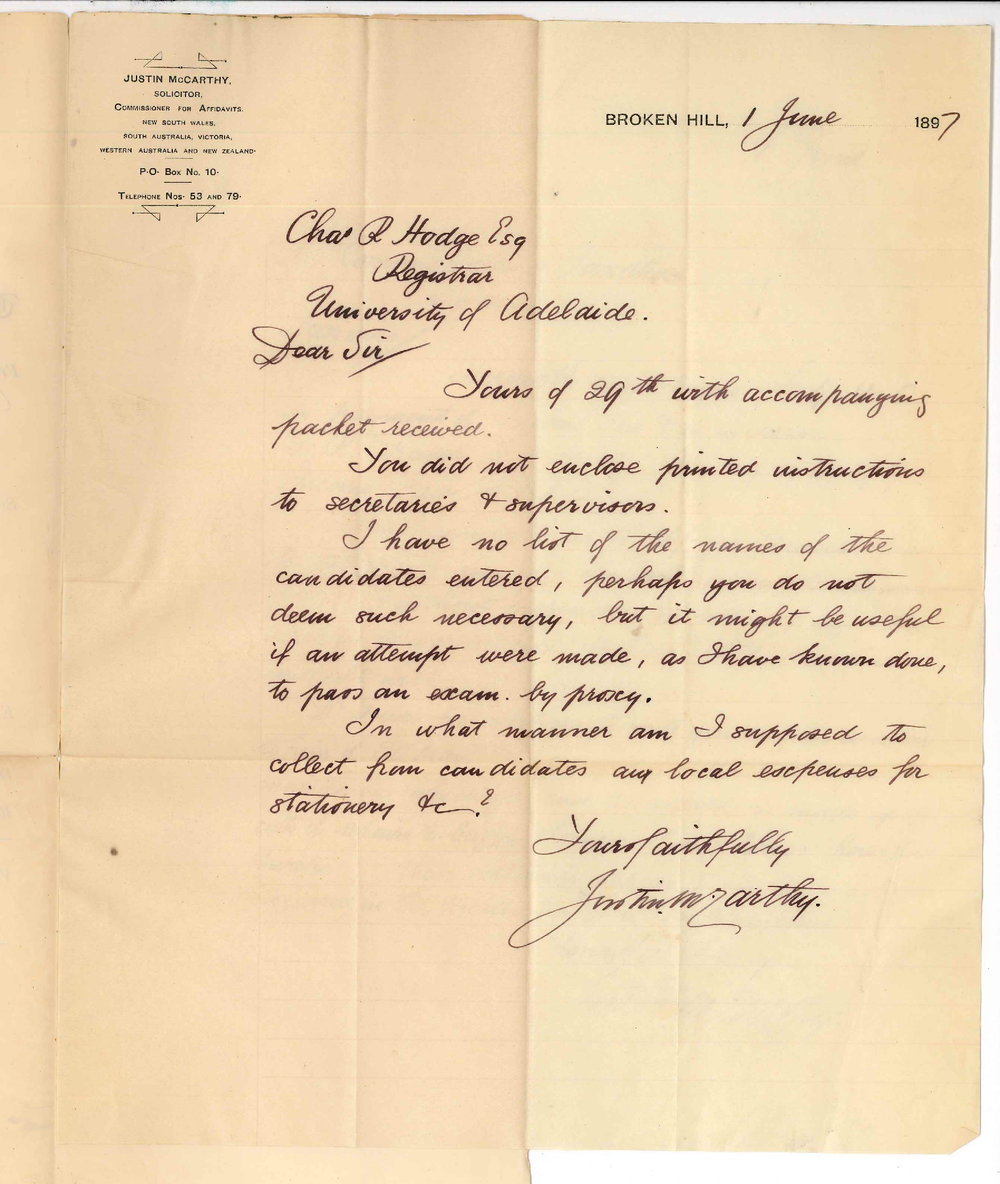 JUSTIN McCARTHY,
SOLICITOR,
COMMISSIONER FOR AFFIDAVITS.
NEW SOUTH WALES,
SOUTH AUSTRALIA, VICTORIA,
WESTERN AUSTRALIA AND NEW ZEALAND.
P.O. BOX NO. 10.
TELEPHONE NOS. 53 AND 79.
BROKEN HILL, 1 June 1897
Chas R Hodge Esq
Registrar
University of Adelaide.
Dear Sir
Yours of 29th with accompanying
packet received.
You did not enclose printed instructions
to secretaries & supervisors.
I have no list of the names of the
candidates entered, perhaps you do not
deem such necessary, but it might be useful
if an attempt were made, as I have known done,
to pass an exam. by proxy.
In what manner am I supposed to
collect from candidates any local expenses for
stationery &c?
Yours faithfully
Justin McCarthy.